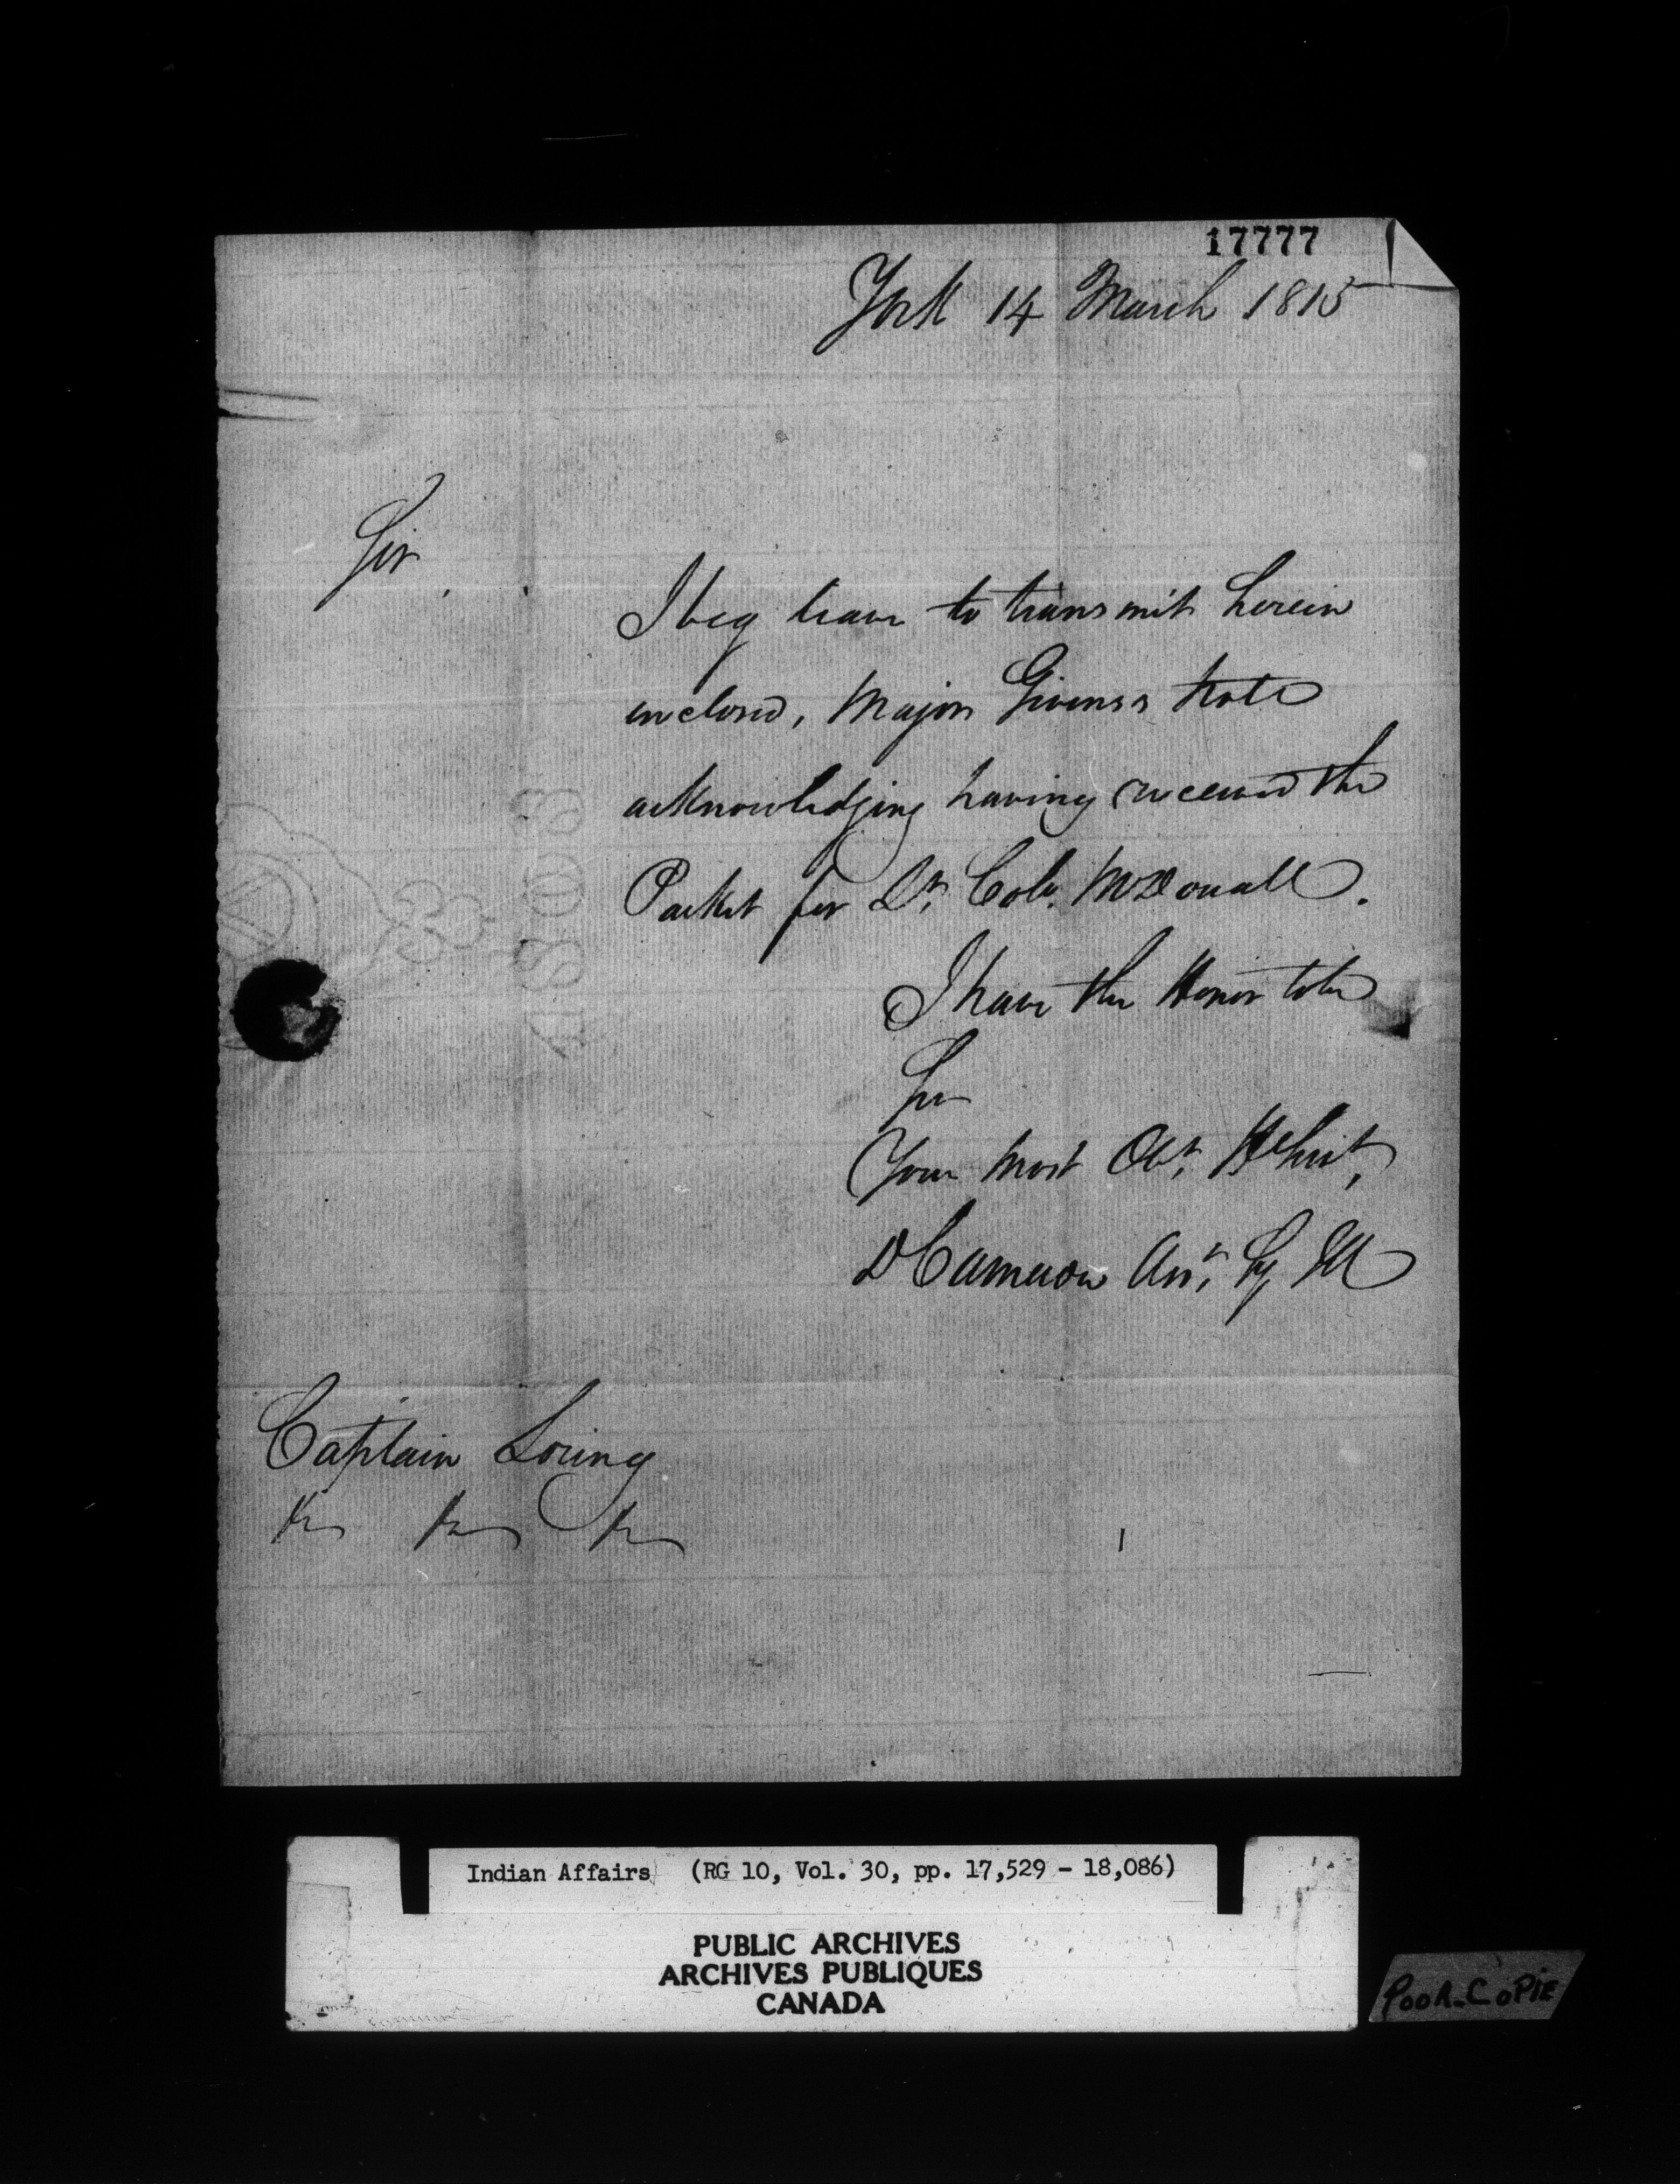 17777
York 14 March 1815
Sir,
I beg leave to transmit herein
enclosed, Major Givens's Note
acknowledging having received the
Packet for Lt. Coln. McDouall.
I have the Honor to be
Sir
Your most Obt. Hble Servt,
D Cameron Asst. Sy IA
Captain Loring
&c &c &c
Indian Affairs (RG 10, Vol. 30, pp. 17,529 - 18,086)
PUBLIC ARCHIVES
ARCHIVES PUBLIQUES
CANADA
POOR-COPIE